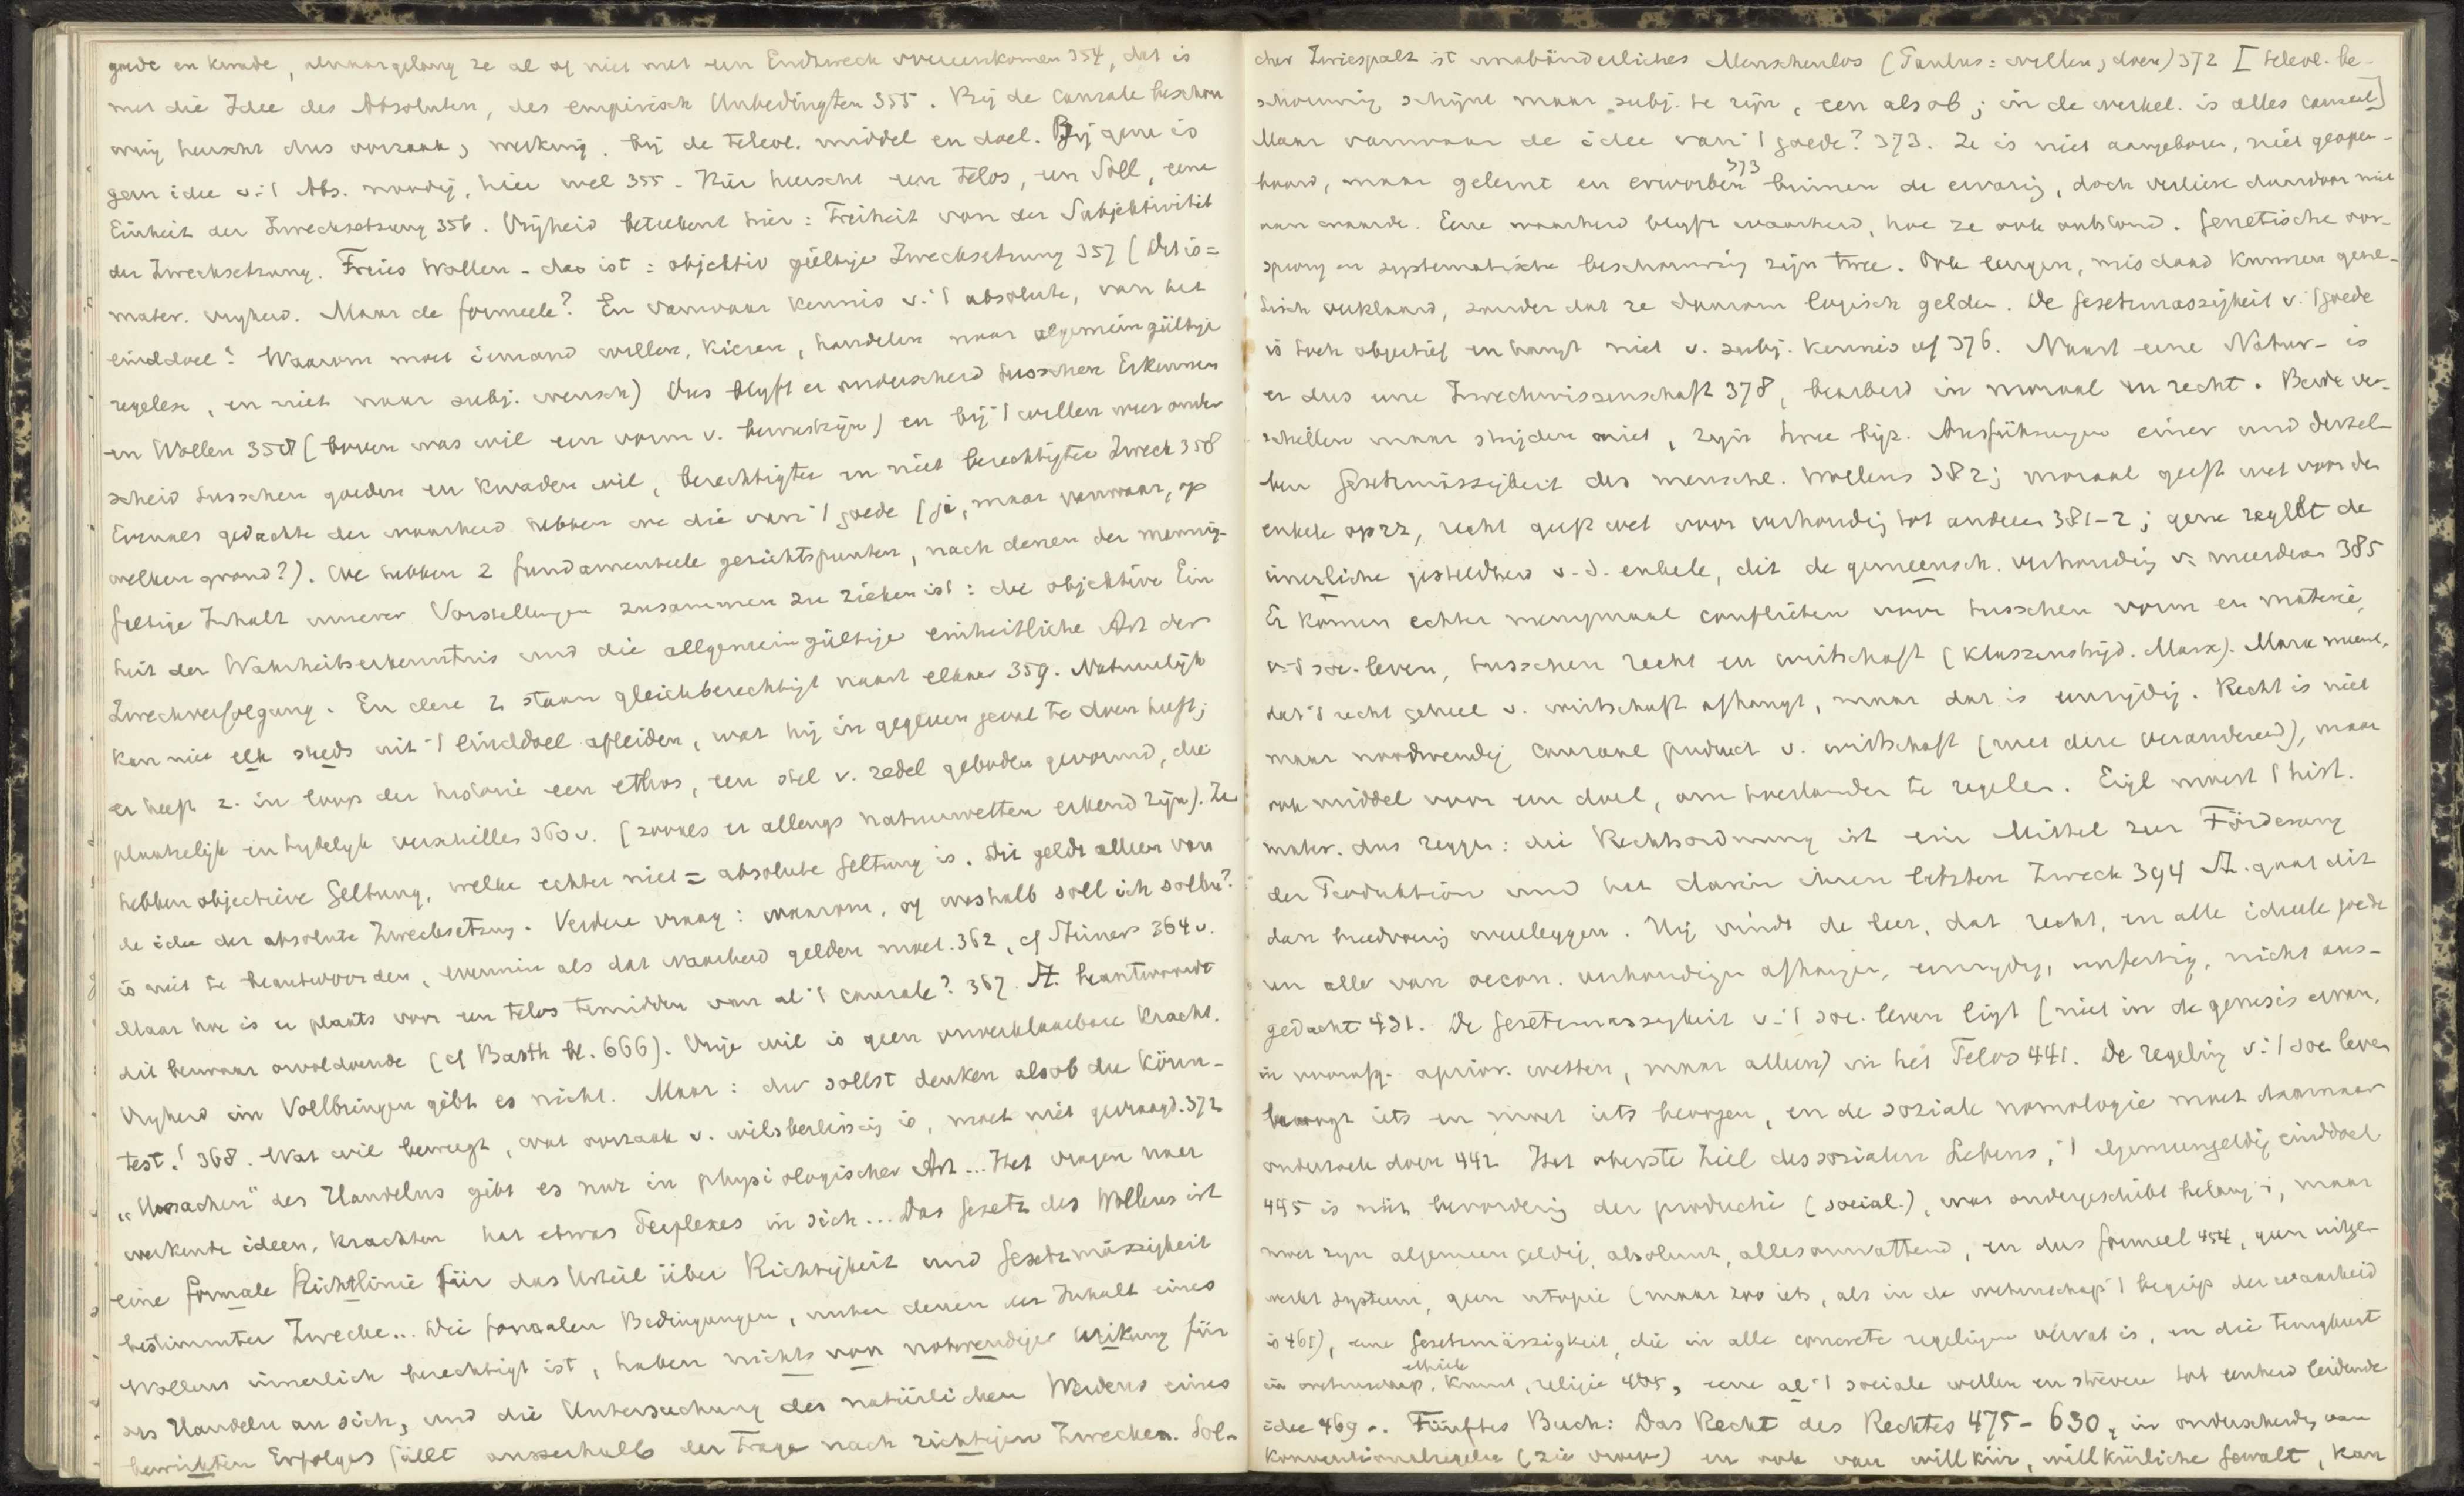 goede en kwade, alnaargelang ze al of niet met een Endzweck overeenkomen 354, dat is
met die Idee des Absoluten, des empirisch Unbedingten 355. Bij de causale beschou
wing heerscht dus oorzaak, werking. bij de teleol. middel en doel. Bij gene is
geen idee v. 't Abs. noodig, hier wel 355. Hier heerscht een Telos, een Soll, eene
Einheit der Zwecksetzung 356. Vrijheid beteekent hier: Freiheit von der Subjektivität
der Zwecksetzung. Freies Wollen - das ist: objektiv gültige Zwecksetzung 357 (Dit is =
mater. vrijheid. Maar de formeele? En vanwaar kennis v. 't absolute, van het
einddoel? Waarom moet iemand willen, kiezen, handelen naar algemeingültige
regelen, en niet naar subj. wensch) Dus blijft er onderscheid tusschen Erkennen
en Wollen 358 (boven was wil een vorm v. bewustzijn) en bij 't willen weer onder
scheid tusschen goeden en kwaden wil, berechtigter en niet berechtigter Zweck 358
Evenals gedachte der waarheid hebben we die van 't goede (ja, maar vanwaar, op
welken grond?). We hebben 2 fundamenteele gesichtspunten, nach denen der mannig-
faltige Inhalt unserer Vorstellungen zusammen zu ziehen ist: die objektive Ein
heit der Wahrheitserkenntnis und die allgemeingültige einheitliche Art der
Zweckverfolgung. En deze 2 staan gleichberechtigt naast elkaar 359. Natuurlijk
kan niet elk steeds uit 't einddoel afleiden, wat hij in gegeven geval te doen heeft;
er heeft z. in loop der historie een ethos, een stel v. zedel. geboden gevormd, die
plaatselijk en tijdelijk verschillen 360 v. (zooals er allengs natuurwetten erkend zijn). Ze
hebben objectieve Geltung, welke echter niet = absolute Geltung is. Dit geldt alleen van
de idee der absolute Zwecksetzung. Verdere vraag: waarom, of weshalb soll ich sollen?
is niet te beantwoorden, evenmin als dat waarheid gelden moet. 362, cf Stirner 364 v.
Maar hoe is er plaats voor een telos temidden van al 't causale? 367. St. beantwoordt
dit bezwaar onvoldoende (cf Barth bl. 666). Vrije wil is geen onverklaarbare kracht.
Vrijheid im Vollbringen gibt es nicht. Maar: du sollst denken alsob du könn-
test! 368. Wat wil beweegt, wat oorzaak v. wilsbeslissing is, moet niet gevraagd. 372
„Ursachen" des Handelns gibt es nur in physiologischer Art... Het vragen naar
werkende ideen, krachten hat etwas Perplexes in sich... Das Gesetz des Wollens ist
eine formale Richtlinie für das Urteil über Richtigkeit und Gesetzmässigkeit
bestimmter Zwecke... Die formalen Bedingungen, unter denen der Inhalt eines
Wollens innerlich berechtigt ist, haben nichts von notwendiger Wirkung für
das Handeln an sich, und die Untersuchung des natürlichen Werdens eines
bewirkten Erfolges fällt ausserhalb der Frage nach richtigen Zwecken. Sol-
cher Zwiespalt ist unabänderliches Menschenlos (Paulus: willen, doen) 372 [teleol. be-
schouwing schijnt maar subj. te zijn, een alsob; in de werkel. is alles causaal]
Maar vanwaar de idee van 't goede? 373. Ze is niet aangeboren, niet geopen-
baard, maar gelernt en erworben 373 binnen de ervaring, doch verliest daardoor niet
aan waarde. Eene waarheid blijft waarheid, hoe ze ook ontstond. Genetische oor-
sprong en systematische beschouwing zijn twee. Ook leugen, misdaad kunnen gene-
tisch verklaard, zonder dat ze daarom logisch gelden. De Gesetzmässigkeit v. 't goede
is toch objectief en hangt niet v. subj. kennis af 376. Naast eene Natur- is
er dus eene Zweckwissenschaft 378, bearbeid in moraal en recht. Beide ver-
schillen maar strijden niet, zijn twee bijz. Ausführungen einer und dersel-
ben Gesetzmässigkeit des menschl. Wollens 382; moraal geeft wet voor den
enkele op zz, recht geeft wet voor verhouding tot anderen 381-2; gene regelt de
innerliche gesteldheid v. d. enkele, dit de gemeensch. verhouding v. meerderen 385
Er komen echter menigmaal conflicten voor tusschen vorm en materie,
v. 't soc. leven, tusschen recht en wirtschaft (klassenstrijd. Marx). Marx meent,
dat 't recht geheel v. wirtschaft afhangt, maar dat is eenzijdig. Recht is niet
maar noodwendig causaal product v. wirtschaft (met deze veranderend), maar
ook middel voor een doel, om toestanden te regelen. Eigl. moest 't hist.
mater. dus zeggen: die Rechtsordnung ist ein Mittel zur Förderung
der Produktion und hat darin ihren letzten Zweck 394 St. gaat dit
dan breedvoerig weerleggen. Hij vindt de leer, dat recht, en alle ideele goede
en alles van oecon. verhoudingen afhangen, eenzijdig, unfertig, nicht aus-
gedacht 431. De Gesetzmässigkeit v. 't soc. leven ligt (niet in de genesis ervan,
in voorafg. aprior. wetten, maar alleen) in het Telos 441. De regeling v. 't soc leven
beoogt iets en moet iets beoogen, en de soziale nomologie moet daarnaar
onderzoek doen 442 Het oberste Ziel des sozialen Lebens, 't algemeengeldig einddoel
445 is niet bevordering der productie (social.), wat ondergeschikt belang is, maar
moet zijn algemeen geldig, absoluut, allesomvattend, en dus formeel 454, geen uitge-
werkt systeem, geen utopie (maar zoo iets, als in de wetenschap 't begrip der waarheid
is 461), eene Gesetzmässigkeit, die in alle concrete regelingen vervat is, en die terugkeert
in wetenschap, ethiek kunst, religie 465, eene al 't sociale willen en streven tot eenheid leidende
idee 469 . Fünftes Buch: Das Recht des Rechtes 475-630, in onderscheiding van
Konventionalregelen (zie vroeger) en ook van willkür, willkürliche Gewalt, kan